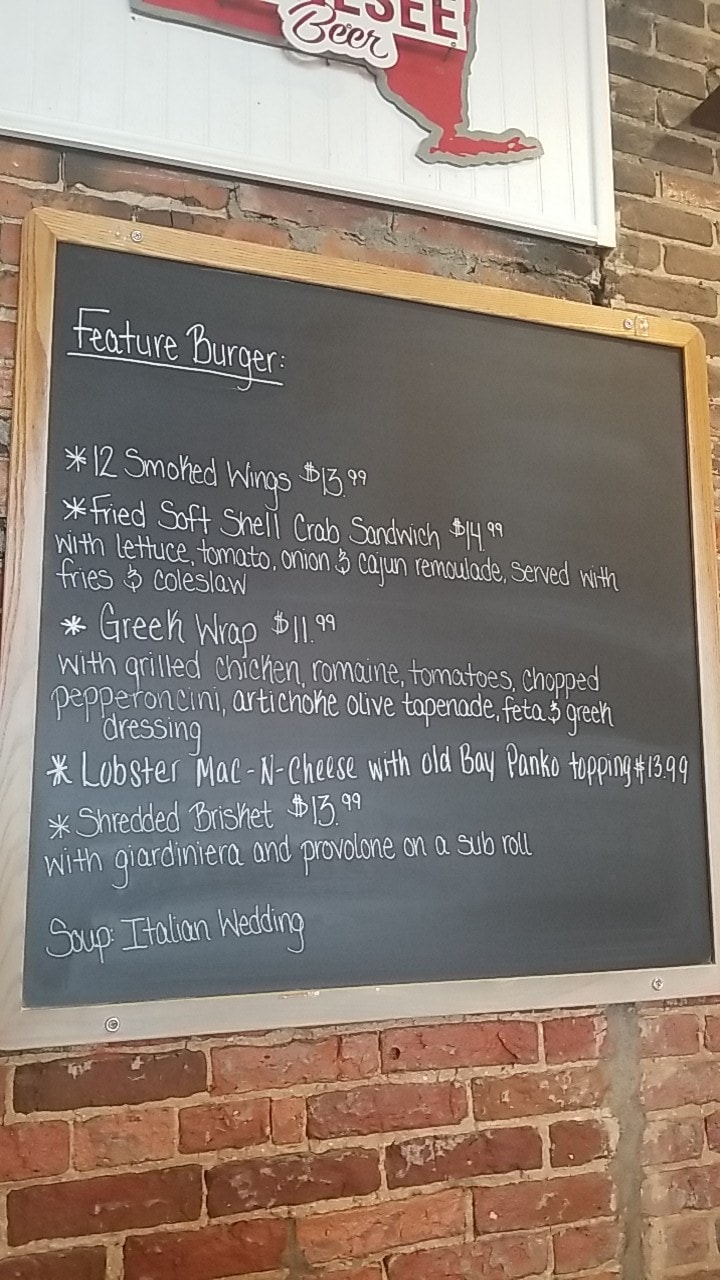 ESEE
Beer
Feature Burger:
*12 Smoked Wings $13.99
*Fried Soft Shell Crab Sandwich $14.99
with lettuce, tomato, onion & cajun remoulade, served with
fries & coleslaw
* Greek Wrap $11.99
with grilled chicken, romaine, tomatoes, chopped
pepperoncini, artichoke olive tapenade, feta & greek
dressing
* Lobster Mac-N-Cheese with old Bay Panko topping $13.99
* Shredded Brisket $13.99
with giardiniera and provolone on a sub roll
Soup: Italian Wedding